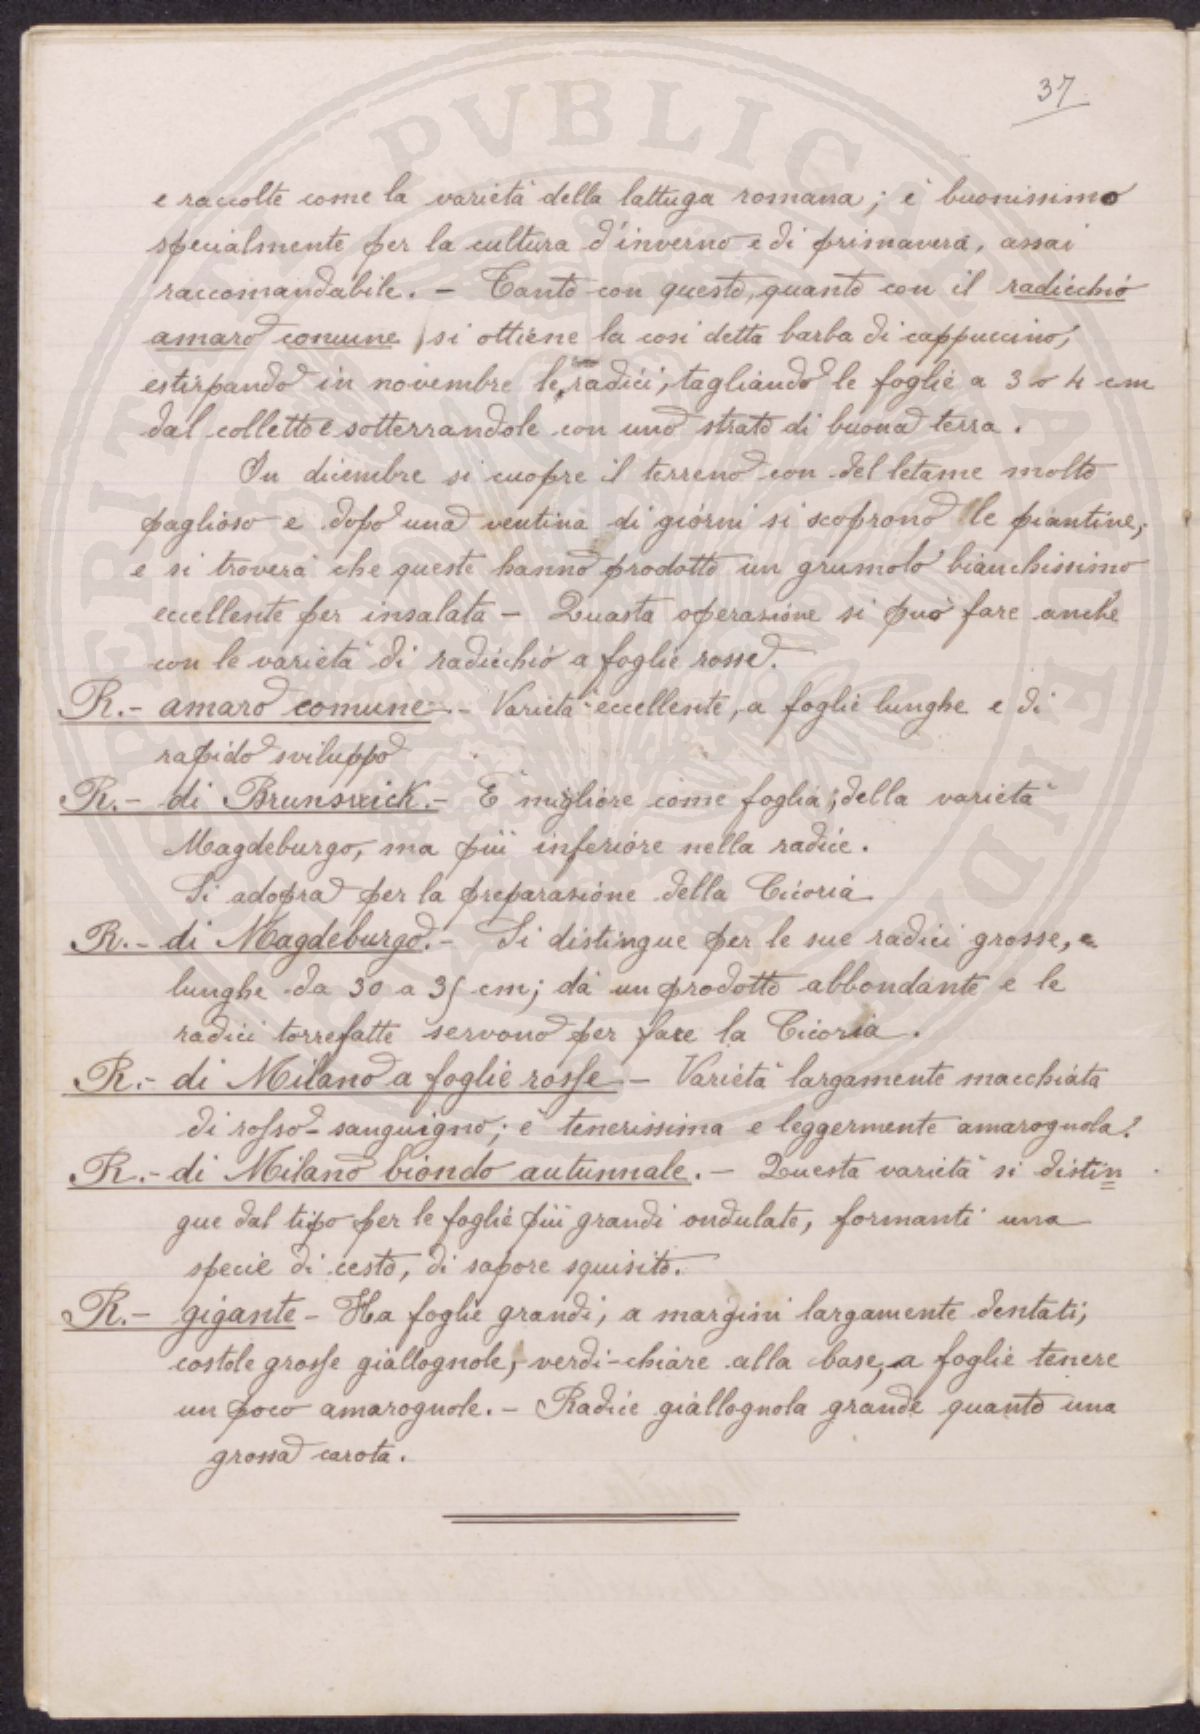 37
e raccolte come la varietà della lattuga romana; è buonissimo
specialmente per la cultura d'inverno e di primavera, assai
raccomandabile. – Tanto con questo, quanto con il radicchio
amaro comune, si ottiene la cosi detta barba di cappuccino,
estirpando in novembre le radici, tagliando le foglie a 3 o 4 cm
dal colletto e sotterrandole con uno strato di buona terra.
In dicembre si cuopre il terreno con del letame molto
paglioso e dopo una ventina di giorni si scoprono le piantine,
e si troverà che queste hanno prodotto un grumolo bianchissimo
eccellente per insalata – Quasta operazione si può fare anche
con le varietà di radicchio a foglie rosse.
R. - amaro comune - Varietà eccellente, a foglie lunghe e di
rapido sviluppo
R. - di Brunswick. - È migliore come foglia; della varietà
Magdeburgo, ma più inferiore nella radice.
Si adopra per la preparazione della Cicoria
R. - di Magdeburgo. - Si distingue per le sue radici grosse, e
lunghe da 30 a 35 cm; dà un prodotto abbondante e le
radici torrefatte servono per fare la Cicoria.
R. - di Milano a foglie rosse - Varietà largamente macchiata
di rosso-sanguigno; è tenerissima e leggermente amarognola.
R. - di Milano biondo autunnale. - Questa varietà si distin=
gue dal tipo per le foglie più grandi ondulate, formanti una
specie di cesto, di sapore squisito.
R. - gigante - Ha foglie grandi, a margini largamente dentati;
costole grosse giallognole, verdi-chiare alla base, a foglie tenere
un poco amarognole. - Radice giallognola grande quanto una
grossa carota.